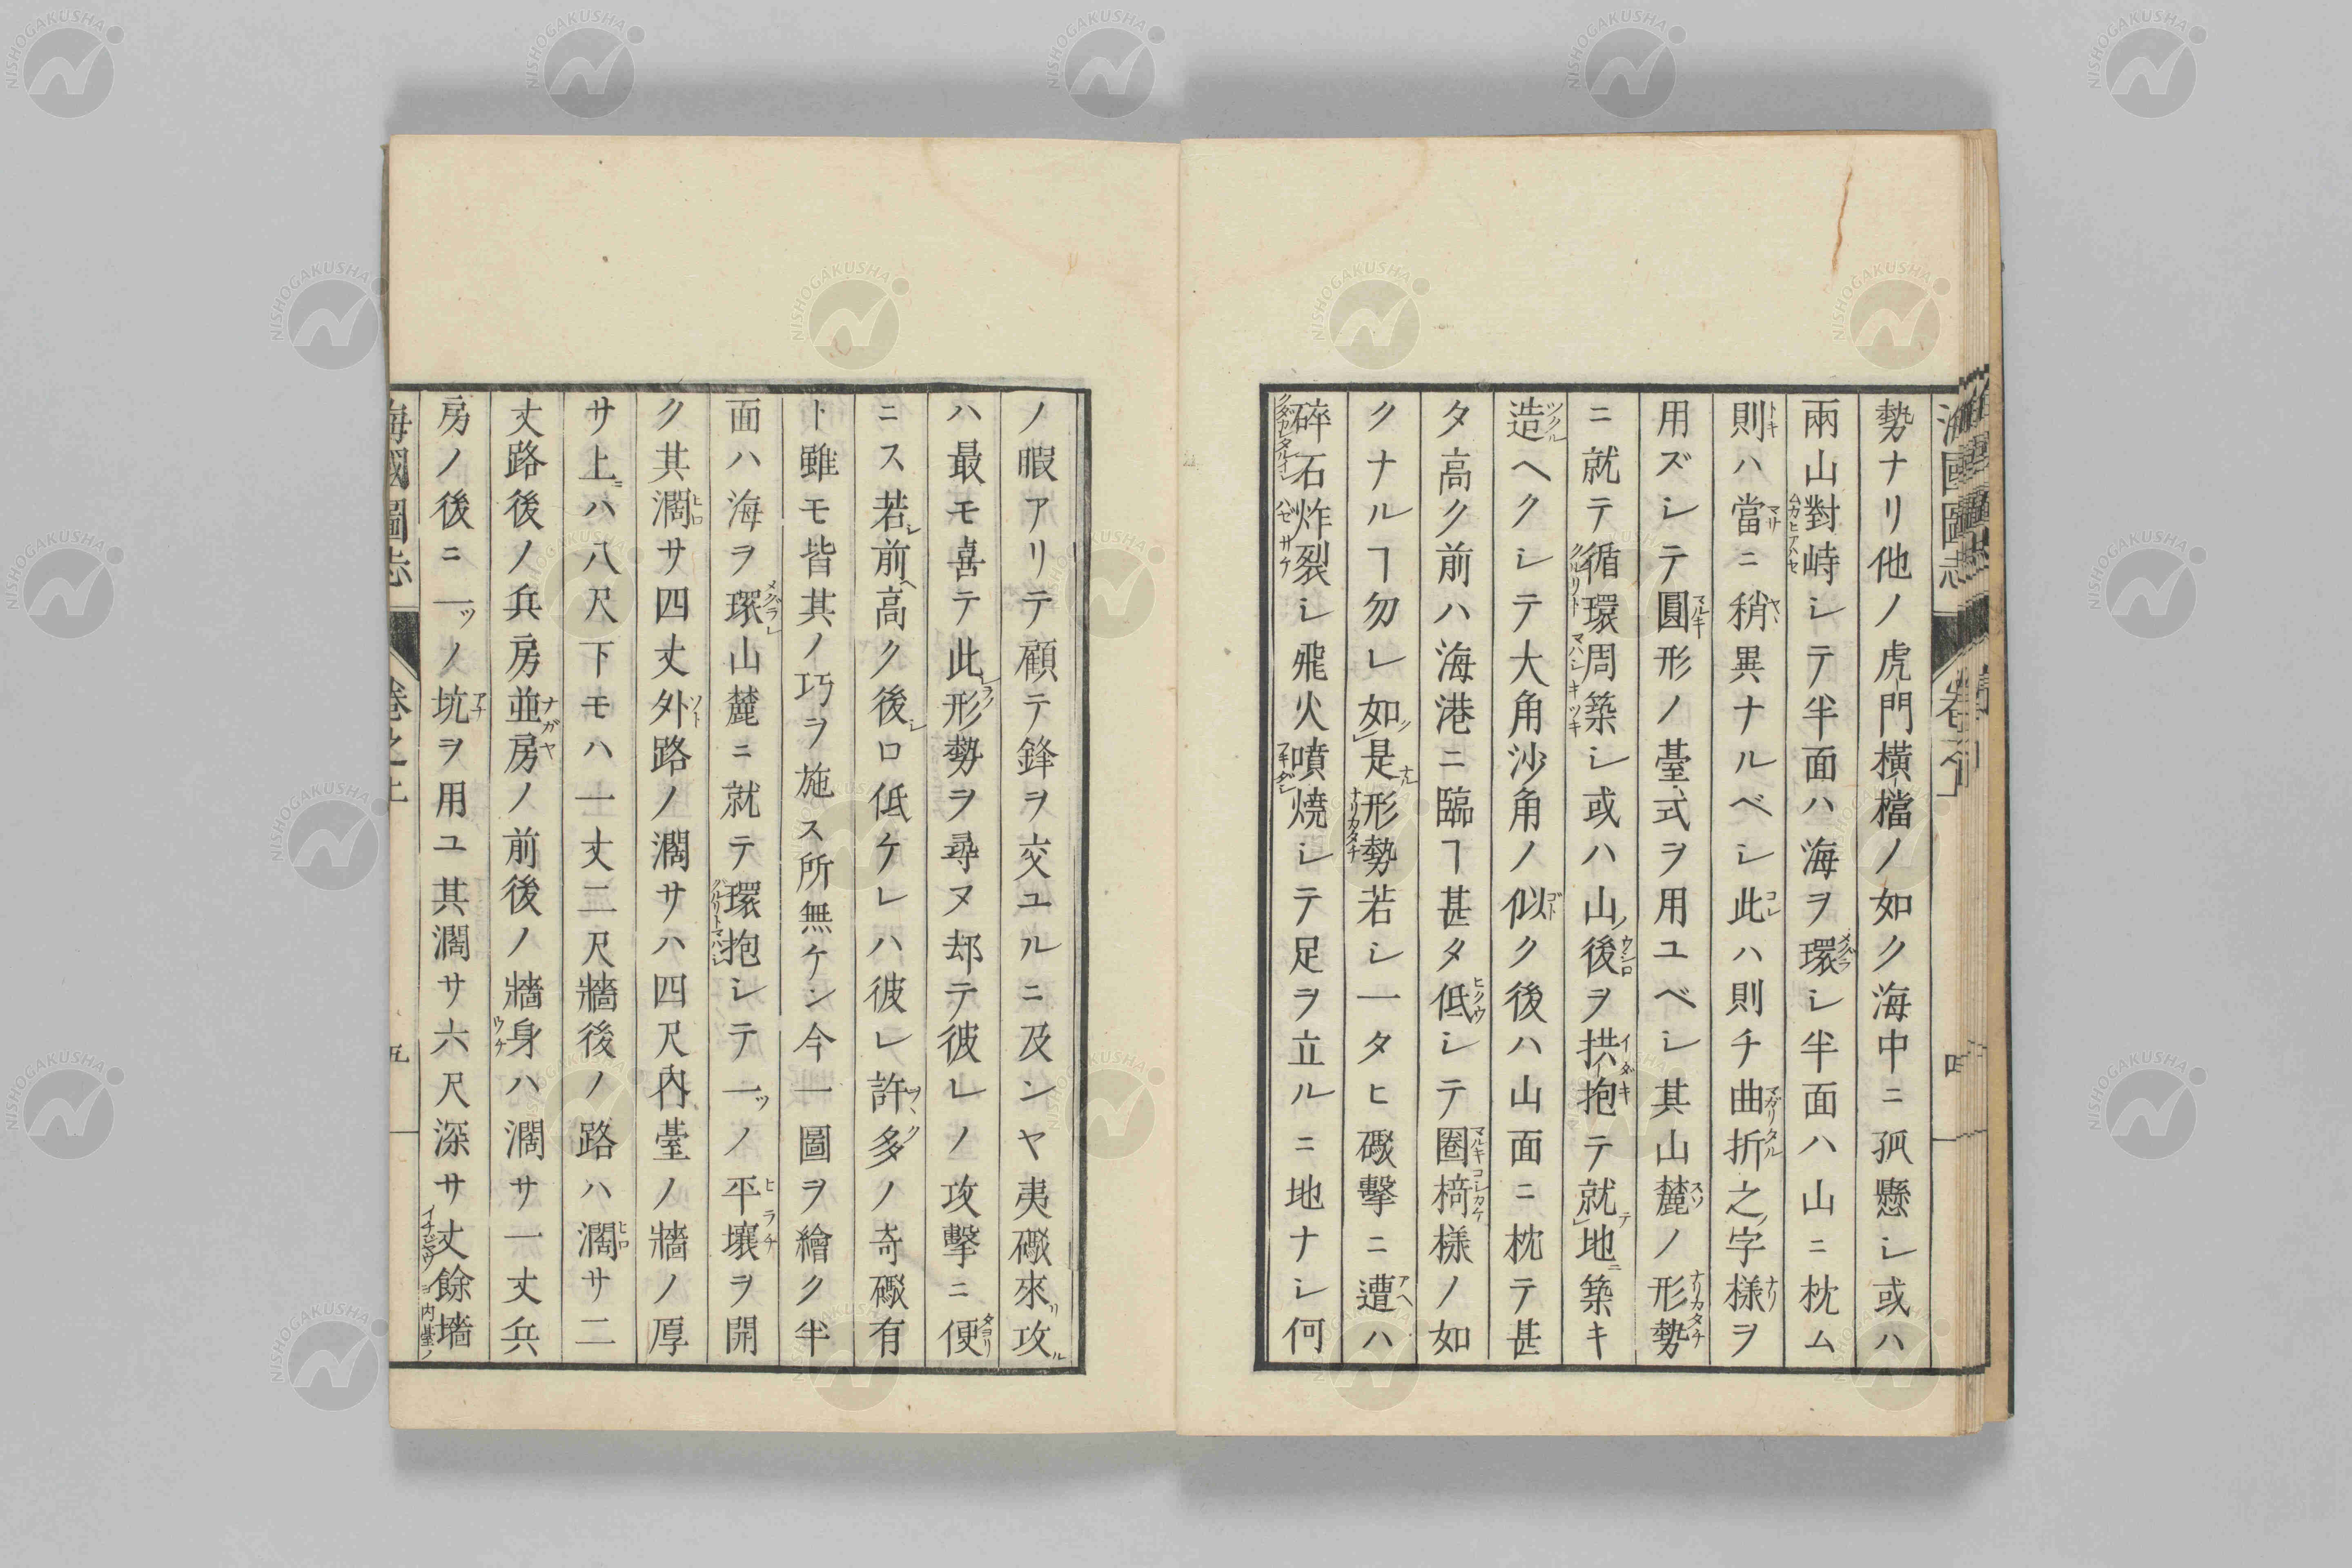 勢ナリ他ノ虎門橫檔ノ如ク海中ニ孤懸シ或ハ
兩山對峙シテ半面ハ海ヲ環シ半面ハ山ニ枕ム
則ハ當ニ稍異ナルベシ此ハ則チ曲折之字樣ヲ
用ズシテ圓形ノ臺式ヲ用ユベシ其山麓ノ形勢
ニ就テ循環周築シ或ハ山ノ後ヲ拱抱テ就地ニ築キ
造ヘクシテ大角沙角ノ似ク後ハ山面ニ枕テ甚
タ高ク前ハ海港ニ臨ヿ甚タ低シテ圏椅樣ノ如
クナルヿ勿レ如是形勢若シ一タヒ礮擊ニ遭ハ
碎石炸裂シ飛火噴燒シテ足ヲ立ルニ地ナシ何
ノ暇アリテ顧テ鋒ヲ交ユルニ及ンヤ夷礮來リ攻ル
ハ最モ喜テ此形勢ヲ尋ヌ却テ彼レノ攻擊ニ便
ニス若シ前ヘ高ク後シロ低ケレハ彼レ許多ノ奇礮有
ト雖モ皆其ノ巧ヲ施ス所無ケン今一圖ヲ繪ク半
面ハ海ヲ環山麓ニ就テ環抱シテ一ツノ平壤ヲ開
ク其濶サ四丈外路ノ濶サハ四尺內臺ノ牆ノ厚
サ上ニハ八尺下モハ一丈二尺牆後ノ路ハ濶サ二
丈路後ノ兵房並房ノ前後ノ牆身ハ濶サ一丈兵
房ノ後ニ一ツノ坑ヲ用ユ其濶サ六尺深サ丈餘墻
海國圖志
五
NISHOGAKUSHA